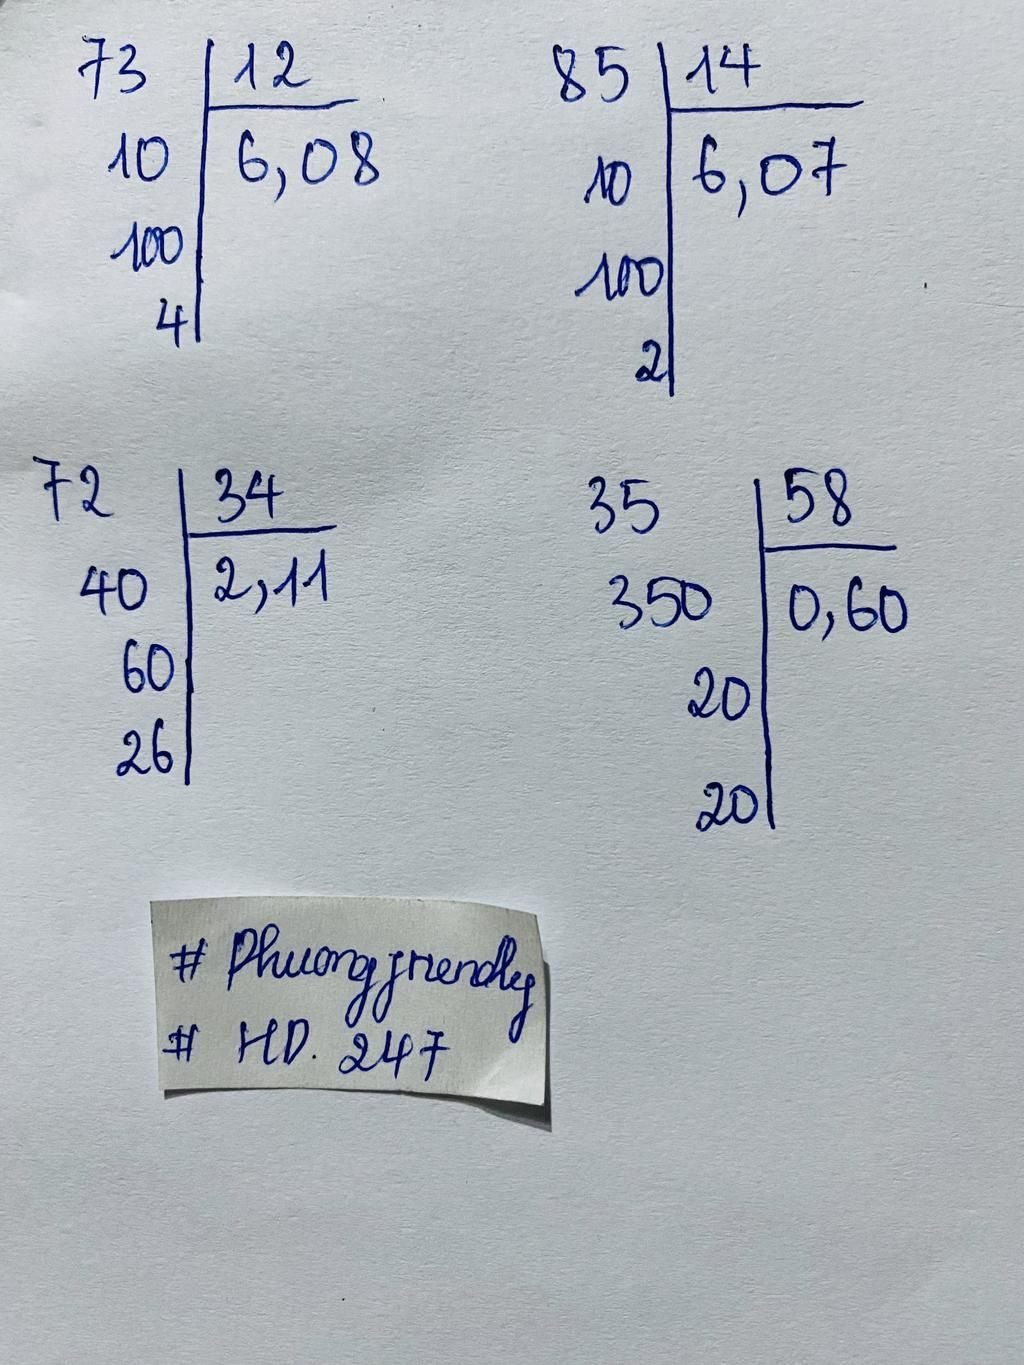 73 12
10 6,08
100
4
85 14
10 6,07
100
2
72 34
40 2,11
60
26
35 58
350 0,60
20
20
# Phuongfriendly
# HD. 247